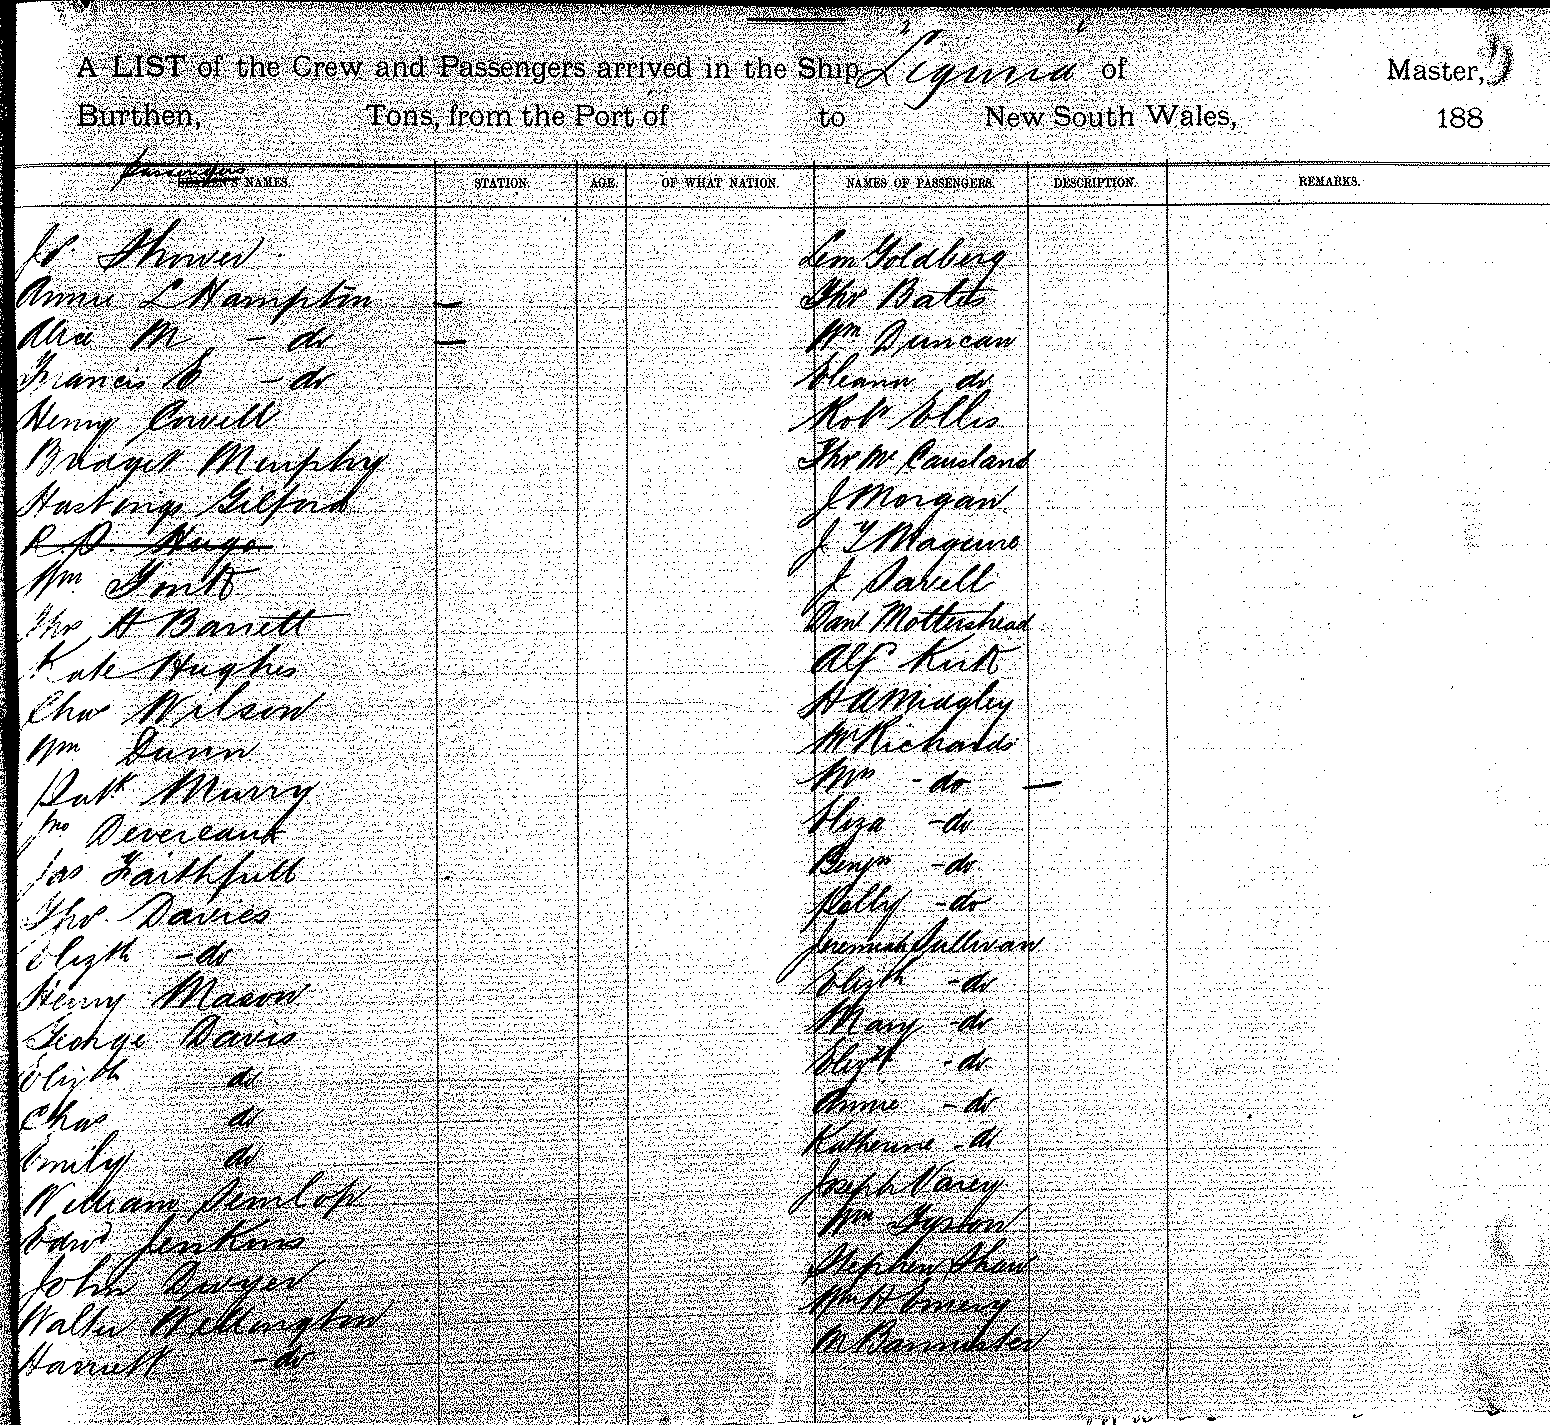 A LIST of the Crew and Passengers arrived in the Ship Liguria of Master,
Burthen, Tons, from the Port of to New South Wales, 188
Passengers
NAMES. STATION. AGE. OF WHAT NATION. NAMES OF PASSENGERS. DESCRIPTION. REMARKS.
Annie L Hampton —
Alice M - do —
Francis E - do
Henry Covell
Bridget Murphy
Hastings Gilford
R. P. Hugo
Wm
Thos H Barrett
Kate Hughes
Chas Wilson
Wm Dunn
Patk Murry
Jno Devereaux
Jas Faithfull
Thos Davies
Elizth - do
Henry Mason
George Davis
Elizth do
Chas do
Emily do
William Dunlop
Edwd Jenkins
John Dwyer
Walter Wellington
Harriett - do
Goldberg
Thos Bates
Wm Duncan
Eleanor do
Robt Ellis
Thos Mc Causland
J Morgan
J T Maguire
J
Danl Mottershead
Alf Kirk
H A Midgley
Mr Richards
Mrs - do —
Eliza - do
Benjn - do
Polly - do
Jeremiah Sullivan
Elizth - do
Mary - do
Elizt - do
Annie - do
Katherine - do
Joseph Varey
Wm Tyson
Stephen Shaw
Wm H Emery
M Bannister